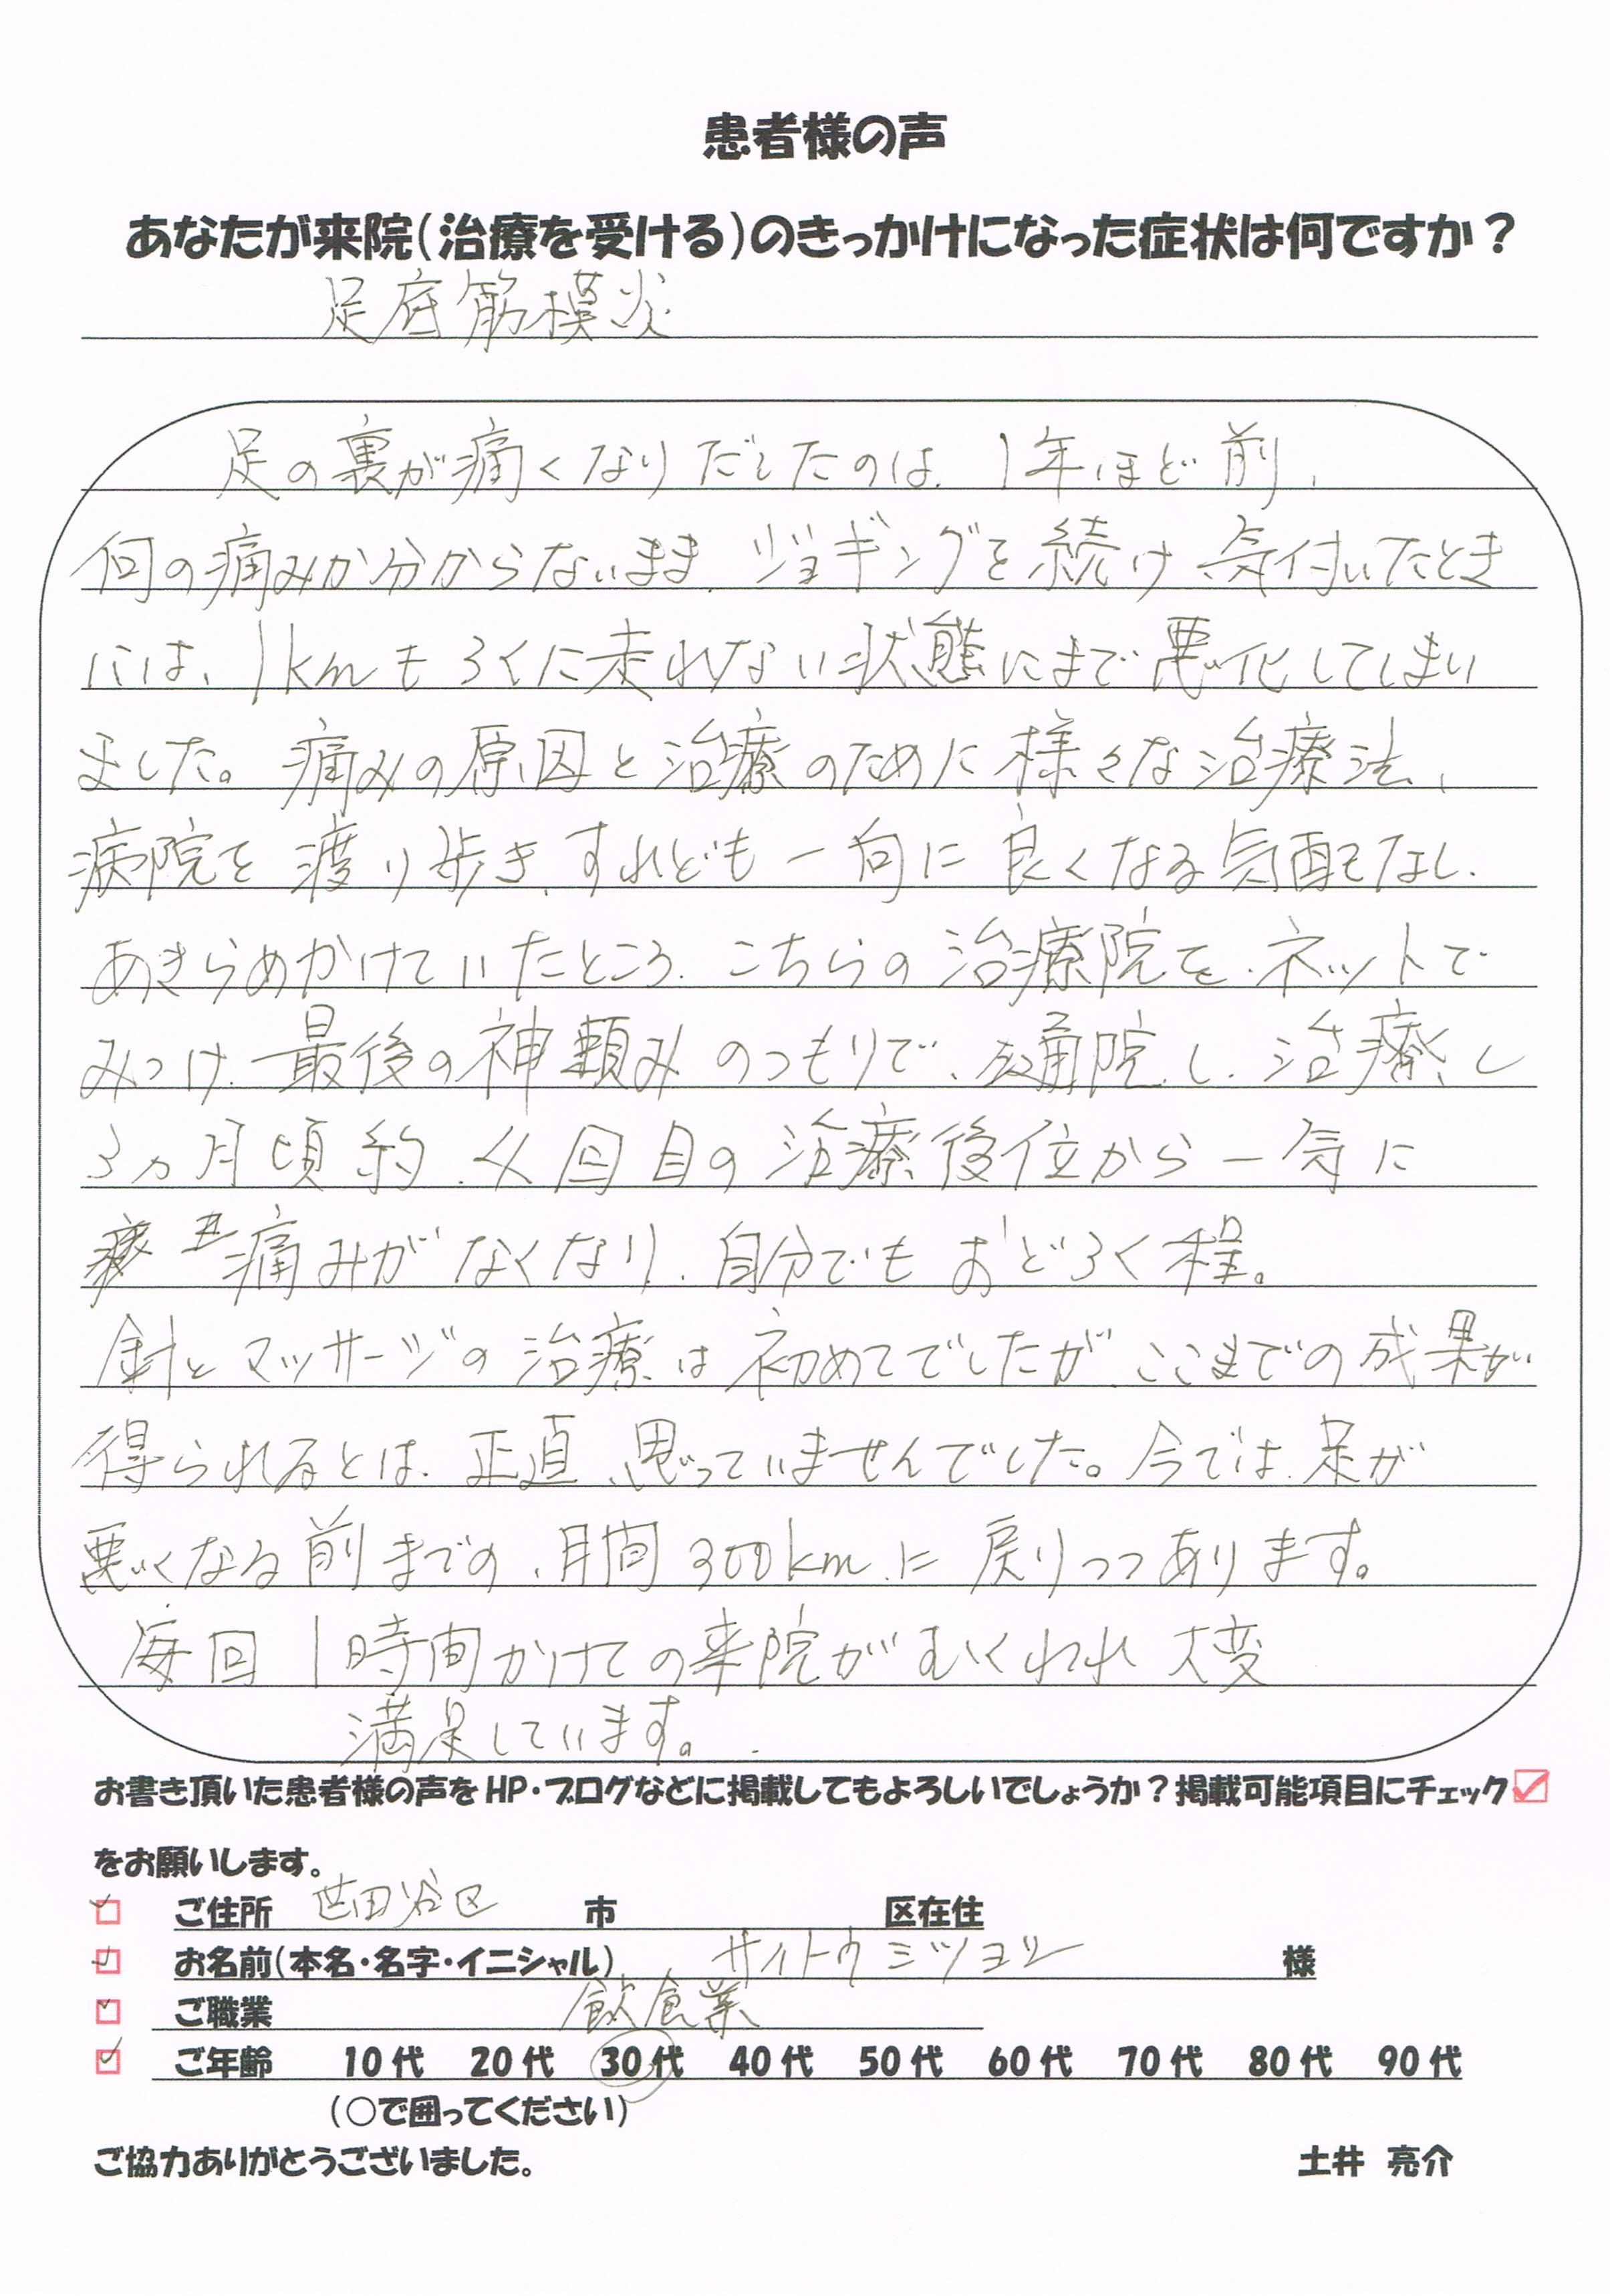 患者様の声
あなたが来院(治療を受ける)のきっかけになった症状は何ですか?
足底筋模炎
足の裏が痛くなりだしたのは、1年ほど前、
何の痛みか分からないまま、ジョギングを続け気付いたとき
には、1kmもろくに走れない状態にまで悪化してしまい
ました。痛みの原因と治療のために様々な治療法、
病院を渡り歩き、すれども一向に良くなる気配もなし、
あきらめかけていたところ、こちらの治療院を、ネットで
みつけ、最後の神頼みのつもりで、通院し、治療し
3ヵ月頃約、4回目の治療後位から一気に
痛みがなくなり、自分でもおどろく程。
針とマッサージの治療は初めてでしたが、ここまでの成果が
得られるとは、正直、思っていませんでした。今では、足が
悪くなる前までの、月間300kmに戻りつつあります。
毎回1時間かけての来院がむくわれ大変
満足しています。
お書き頂いた患者様の声をHP・ブログなどに掲載してもよろしいでしょうか?掲載可能項目にチェック☑
をお願いします。
☑ ご住所 世田谷区 市 区在住
☑ お名前(本名・名字・イニシャル) サイトウミツヨシ 様
☑ ご職業 飲食業
☑ ご年齢 10代 20代 30代 40代 50代 60代 70代 80代 90代
(○で囲ってください)
ご協力ありがとうございました。 土井 亮介